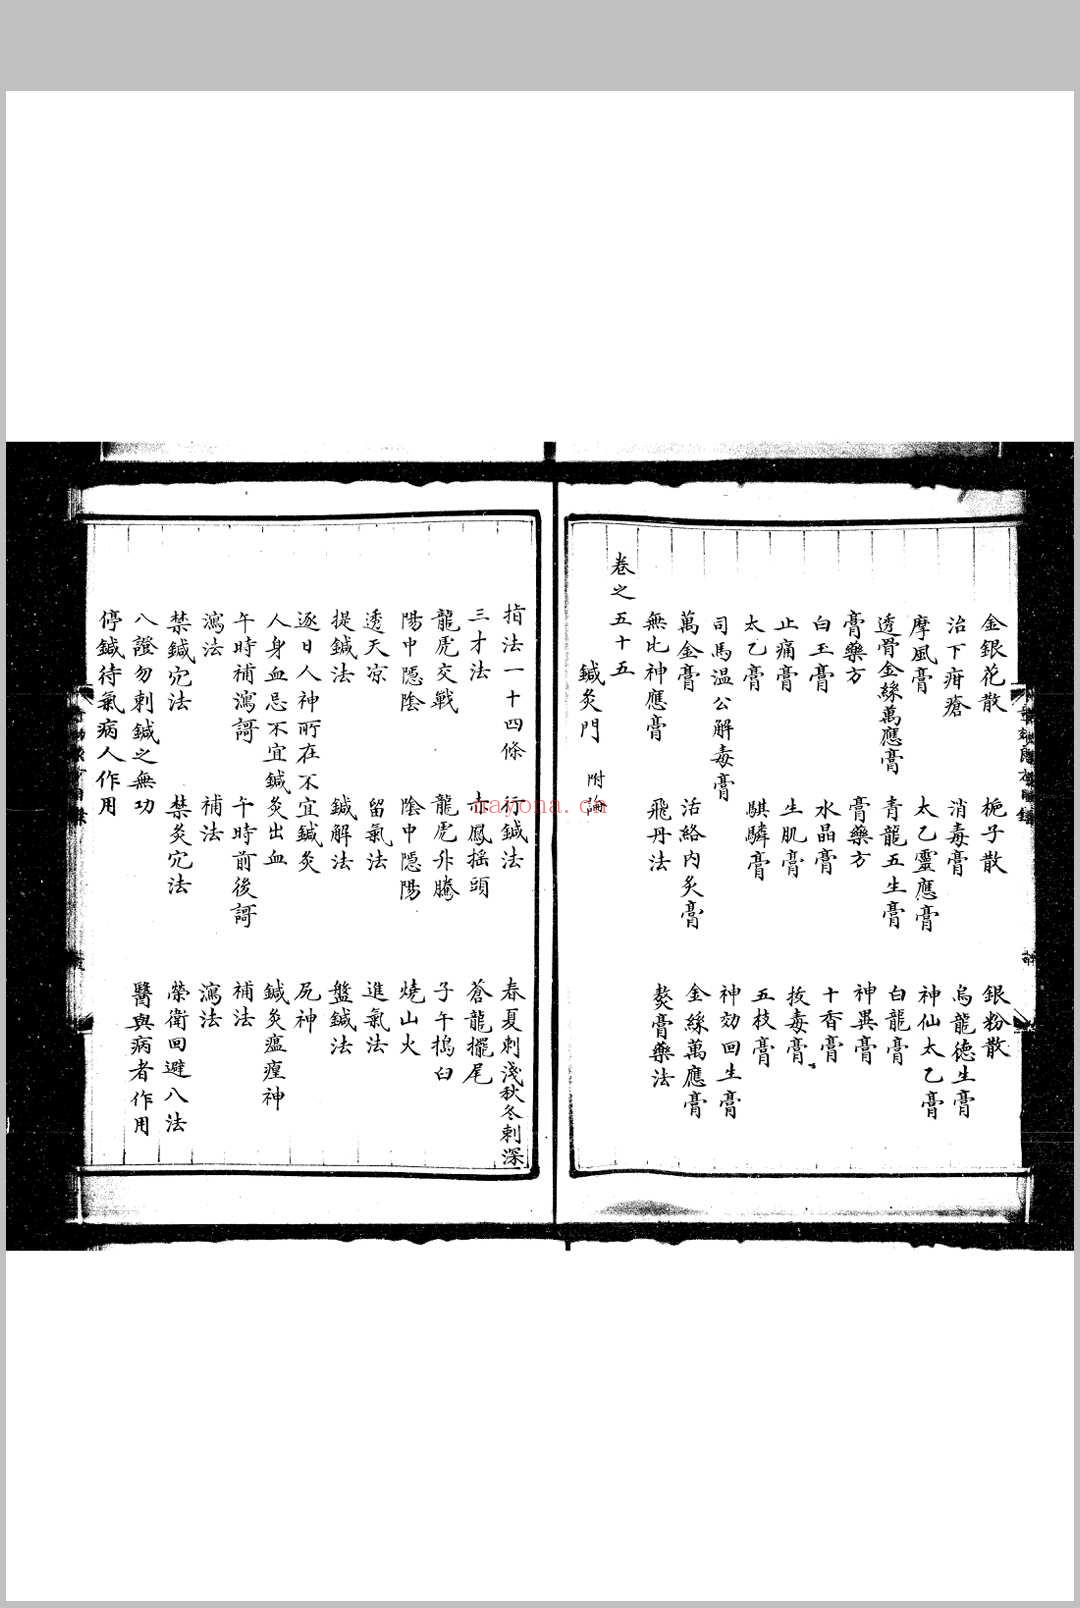 金銀花散　梔子散　銀粉散
治下疳瘡　消毒膏　烏龍德生膏
摩風膏　太乙靈應膏　神仙太乙膏
透骨金絲萬應膏　青龍五生膏　白龍膏
膏藥方　膏藥方　神異膏
白玉膏　水晶膏　十香膏
止痛膏　生肌膏　拔毒膏
太乙膏　騏驎膏　五枝膏
司馬温公解毒膏　神効回生膏
萬金膏　活絡内炙膏　金絲萬應膏
無比神應膏　飛丹法　熬膏藥法
卷之五十五
鍼灸門　附論
指法一十四條　行鍼法　春夏刺淺秋冬刺深
三才法　赤鳳摇頭　蒼龍擺尾
龍虎交戰　龍虎升騰　子午搗臼
陽中隱陰　陰中隱陽　燒山火
透天凉　留氣法　進氣法
提鍼法　鍼解法　盤鍼法
逐日人神所在不宜鍼灸　尻神
人身血忌不宜鍼灸出血　鍼灸瘟㾮神
午時補瀉謌　午時前後謌　補法
瀉法　補法　瀉法
禁鍼穴法　禁灸穴法　榮衛回避八法
八證勿刺鍼之無功　醫與病者作用
停鍼待氣病人作用
nayona.cn